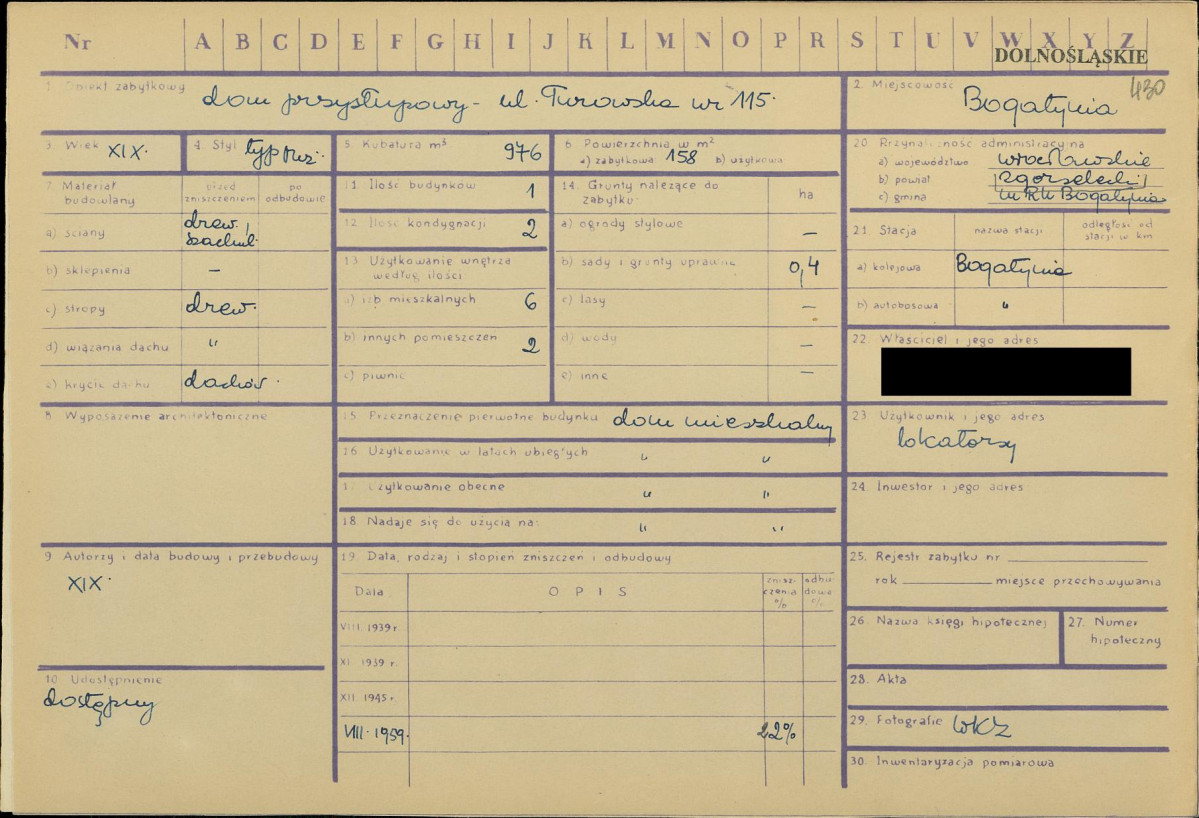 Nr A B C D E F G H I J K L M N O P R S T U V W X Y Z
DOLNOŚLĄSKIE
430
1. Obiekt zabytkowy
dom przysłupowy - ul. Turowska nr 115.
2. Miejscowość
Bogatynia
3. Wiek XIX.
4. Styl
5. Kubatura m³ 976
6. Powierzchnia w m²
a) zabytkowa 158 b) użytkowa
7. Materiał budowlany
przed zniszczeniem
po odbudowie
a) ściany drew., szachul.
b) sklepienia –
c) stropy drew.
d) wiązania dachu "
e) krycie dachu dachów.
8. Wyposażenie architektoniczne
9. Autorzy i data budowy i przebudowy
XIX.
10. Udostępnienie
dostępny
11. Ilość budynków 1
12. Ilość kondygnacji 2
13. Użytkowanie wnętrza według ilości
a) izb mieszkalnych 6
b) innych pomieszczeń 2
c) piwnic
14. Grunty należące do zabytku:
ha
a) ogrody stylowe –
b) sady i grunty uprawne 0,4
c) lasy –
d) wody –
e) inne –
15. Przeznaczenie pierwotne budynku dom mieszkalny
16. Użytkowanie w latach ubiegłych " "
17. Użytkowanie obecne " "
18. Nadaje się do użycia na: " "
19. Data, rodzaj i stopień zniszczeń i odbudowy
Data
OPIS
zniszczenia %
odbudowa %
VIII 1939 r.
XI 1939 r.
XII 1945 r.
VIII. 1959. 22%
20. Przynależność administracyjna
a) województwo wrocławskie
b) powiat zgorzelecki
c) gmina Bogatynia
21. Stacja
nazwa stacji
odległość od stacji w km
a) kolejowa Bogatynia
b) autobusowa "
22. Właściciel i jego adres
23. Użytkownik i jego adres
lokatorzy
24. Inwestor i jego adres
25. Rejestr zabytku nr
rok miejsce przechowywania
26. Nazwa księgi hipotecznej
27. Numer hipoteczny
28. Akta
29. Fotografie WKZ
30. Inwentaryzacja pomiarowa